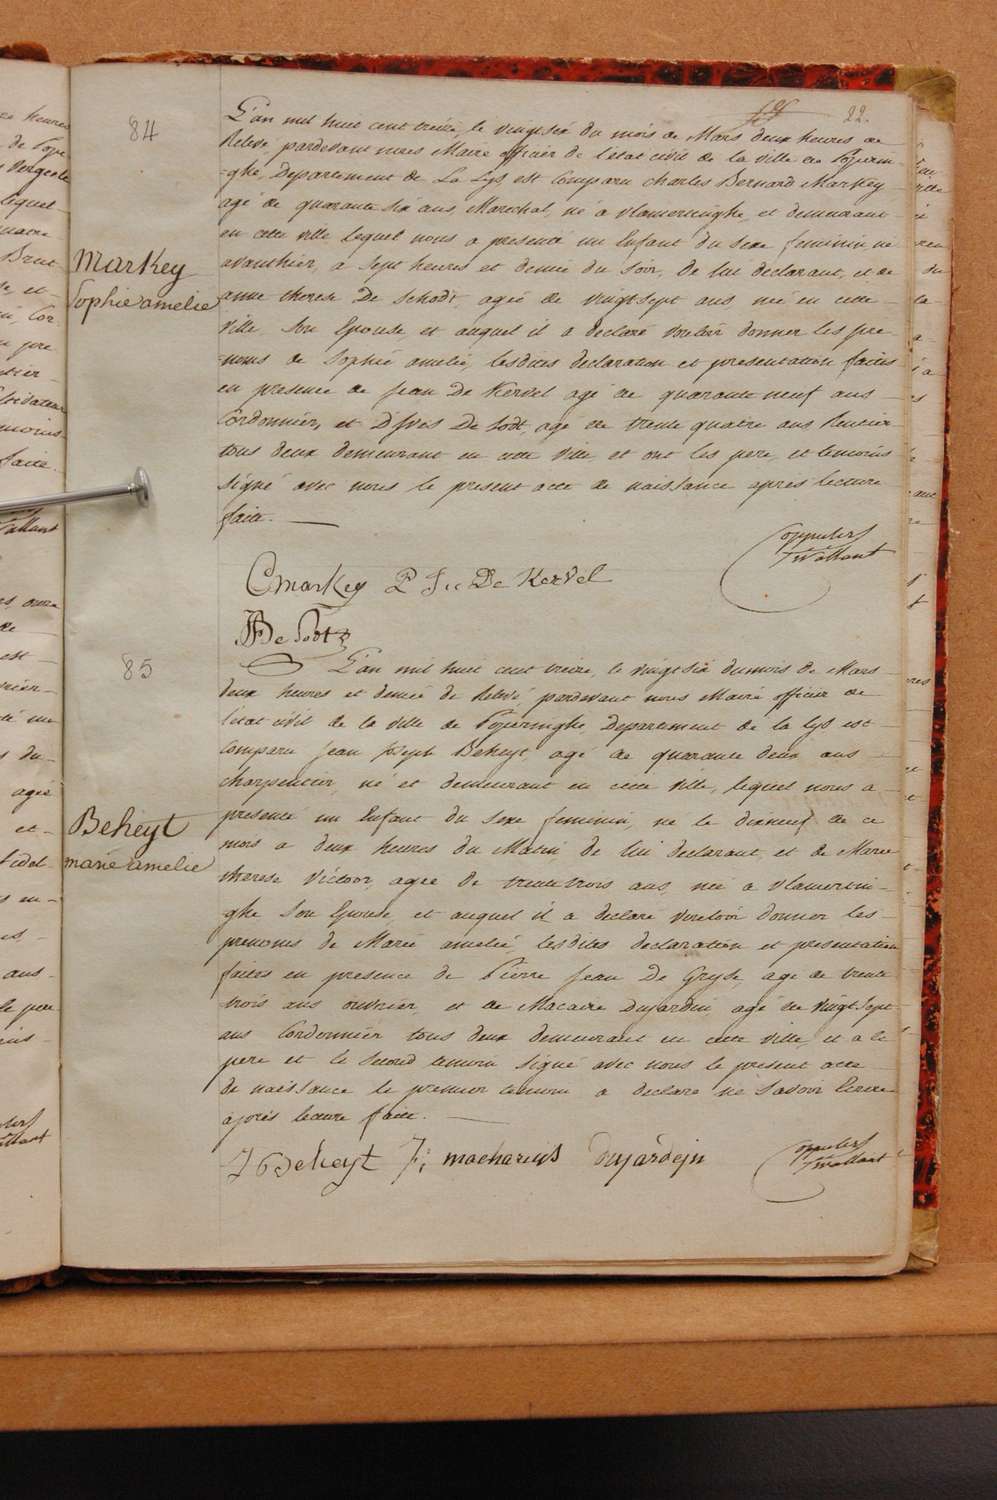 22.
84
L'an mil huit cent treize, le vingtsix du mois de Mars deux heures de
Relevé pardevant nous Maire officier de l'état civil de la ville de Poperin-
-ghe, Departement de La Lys, est Comparu Charles Bernard Markey
agé de quarante six ans, Marechal, né a vlamertinghe, et demeurant
en cette ville lequel nous a presenté un Enfant du sexe feminin né
avanthier, a sept heures et demie du soir, de lui declarant, et de
anne therese De Schodt, agée de vingtsept ans, née en cette
ville, son Epouse, et auquel il a declaré vouloir donner les pre
-noms de Sophie amelie, lesdites declaration et presentation faites
en presence de Jean De Kervel agé de quarante neuf ans
Cordonnier, et D'Yves De Sodt, agé de trente quatre ans Rentier
tous deux demeurant en cette ville et ont les pere, et temoins
signé avec nous le present acte de naissance apres lecture
faite.
Markey
Sophie amelie
CMarkey P J De Kervel
De Sodt
85
L'an mil huit cent treize, le vingtsix du mois de Mars
deux heures et demie de Relevé pardevant nous Maire officier de
l'état civil de la ville de Poperinghe, Departement de la Lys est
Comparu Jean Joseph Beheyt, agé de quarante deux ans
charpentier, né et demeurant en cette ville, lequel nous a
presenté un Enfant du sexe feminin, né le dixneuf de ce
mois a deux heures du Matin, de lui declarant, et de Marie
therese Victoor, agée de trente trois ans, née a vlamertin-
ghe son Epouse, et auquel il a declaré vouloir donner les
prenoms de Marie amelie, lesdites declaration et presentation
faites en presence de Pierre Jean De Gryse, agé de trente
trois ans ouvrier, et de Macaire Dujardin agé de vingt sept
ans Cordonnier tous deux demeurant en cette ville, et a le
pere et le second temoin signé avec nous le present acte
de naissance le premier temoin a declaré ne savoir Ecrire
après lecture faite.
Beheyt
marie amelie
J Beheyt F: macharius dujardyn